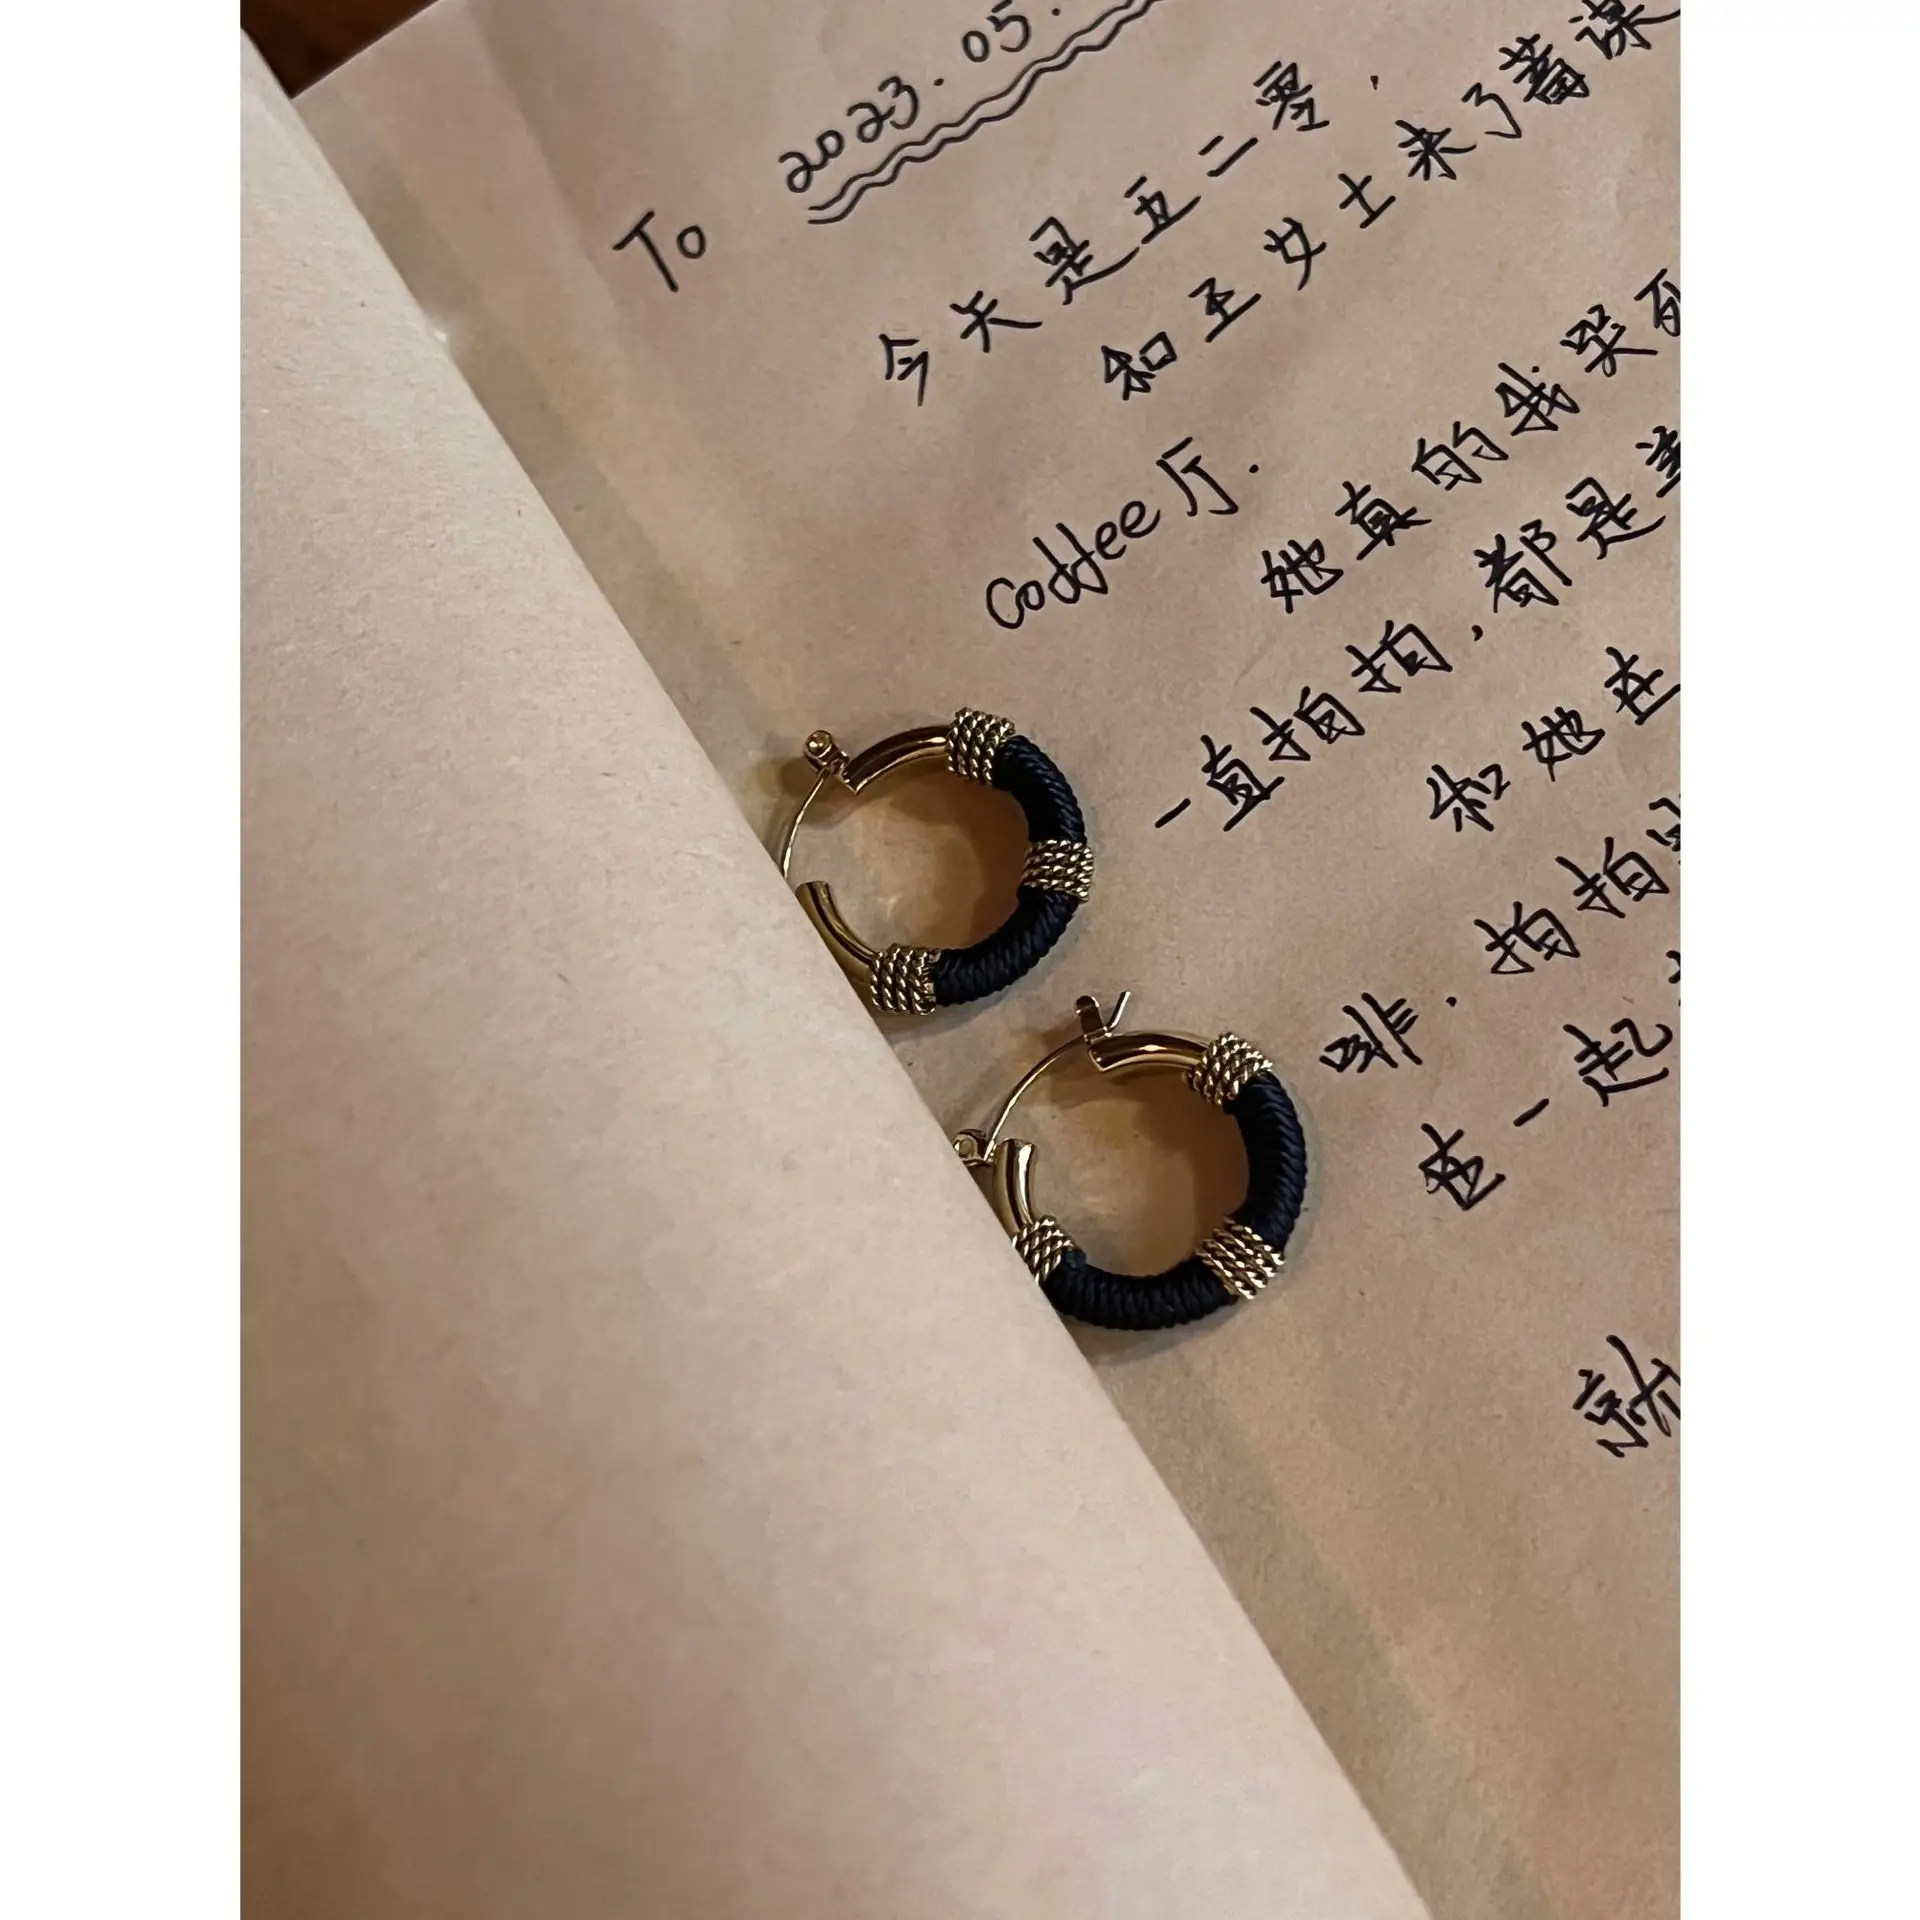 To
2023.05.
今天是五二零,
和王女士来了蓄谋
Coffee厅.
她真的我哭死
一直拍拍,都是美
和她在
啡.拍拍
在一起
就